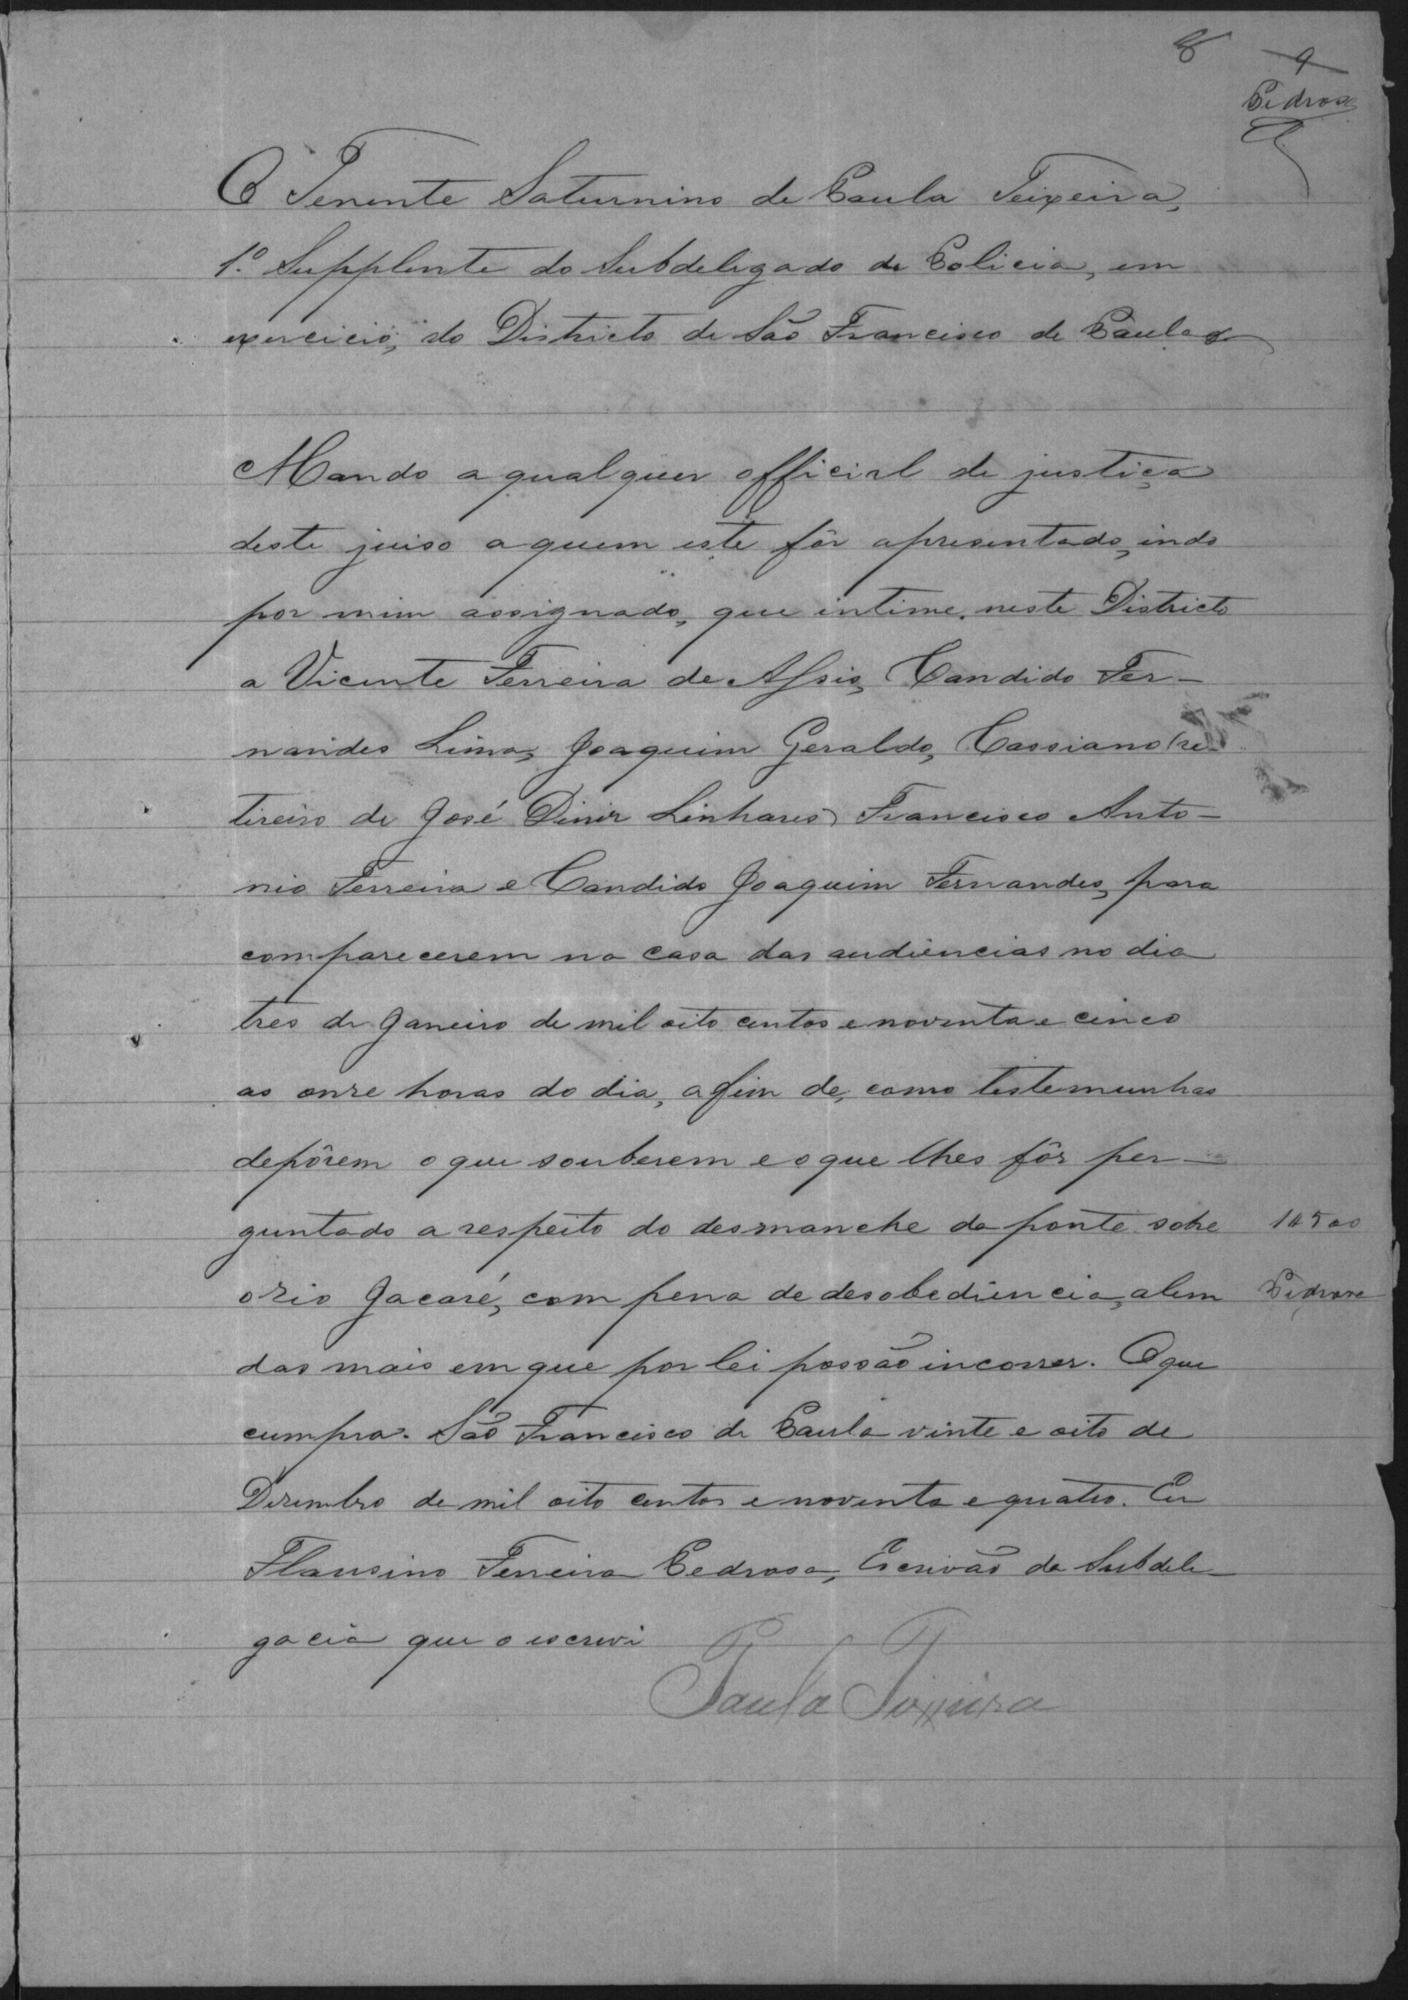 8 9
Pedrosa
O Tenente Saturnino de Paula Teixeira,
1.º Supplente do Subdelegado de Policia, em
exercicio, do Districto de São Francisco de Paula
Mando a qualquer official de justiça
deste juiso a quem este fôr apresentado, indo
por mim assignado, que intime, neste Districto
a Vicente Ferreira de Assis, Candido Fer-
nandes Lima, Joaquim Geraldo, Cassiano (re-
tireiro de José Diniz Linhares) Francisco Anto-
nio Ferreira e Candido Joaquim Fernandes, para
comparecerem na casa das audiencias no dia
tres de Janeiro de mil oito centos e noventa e cinco
as onze horas do dia, afim de, como testemunhas
depôrem o que souberem e o que lhes fôr per-
guntado a respeito do desmanche da ponte sobre
o rio Jacaré, com pena de desobediencia, alem
Pedrosa
das mais em que por lei possão incorrer. O que
cumpra. São Francisco de Paula vinte e oito de
Dezembro de mil oito centos e noventa e quatro. Eu
Flausino Ferreira Pedrosa, Escrivão da Subdele-
gacia que o escrevi
Paula Teixeira